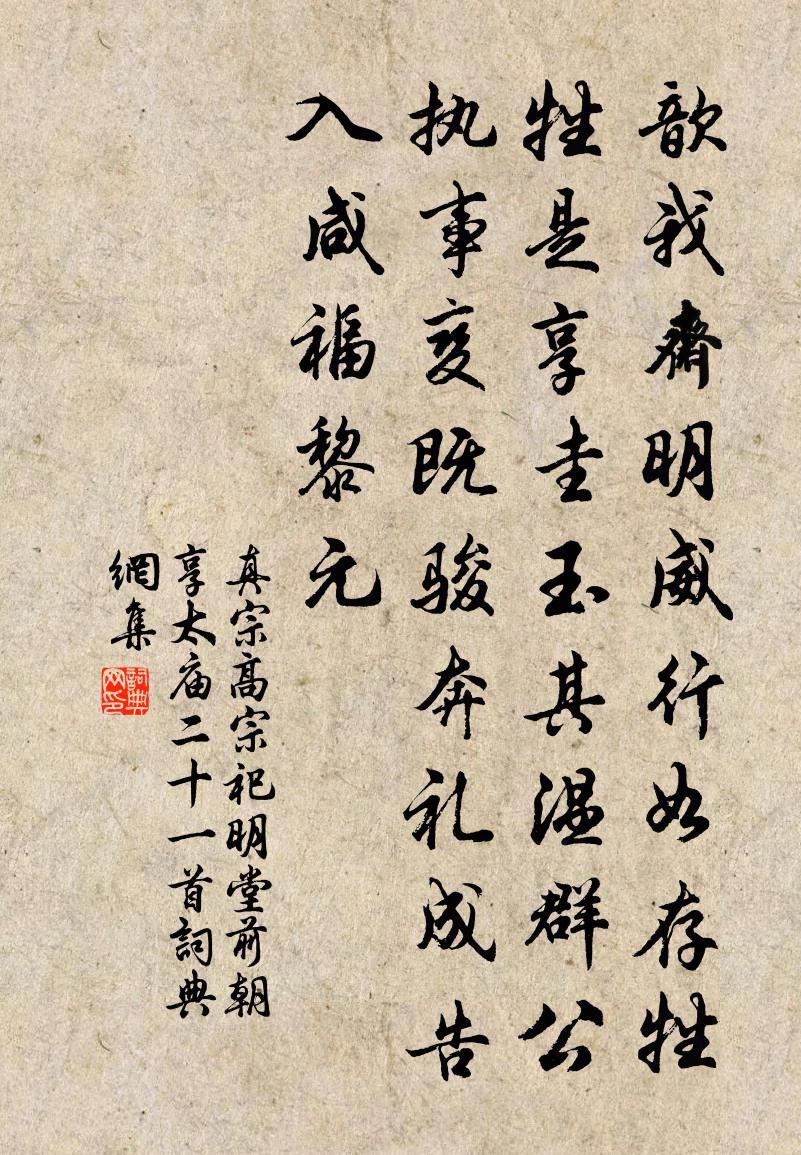 歆我齋明威行如存牲
牲是享圭玉其温群公
执事变既骏奔礼成告
入咸福黎元
真宗高宗祀明堂前朝
享太庙二十一首詞典
網集
詞典
网印